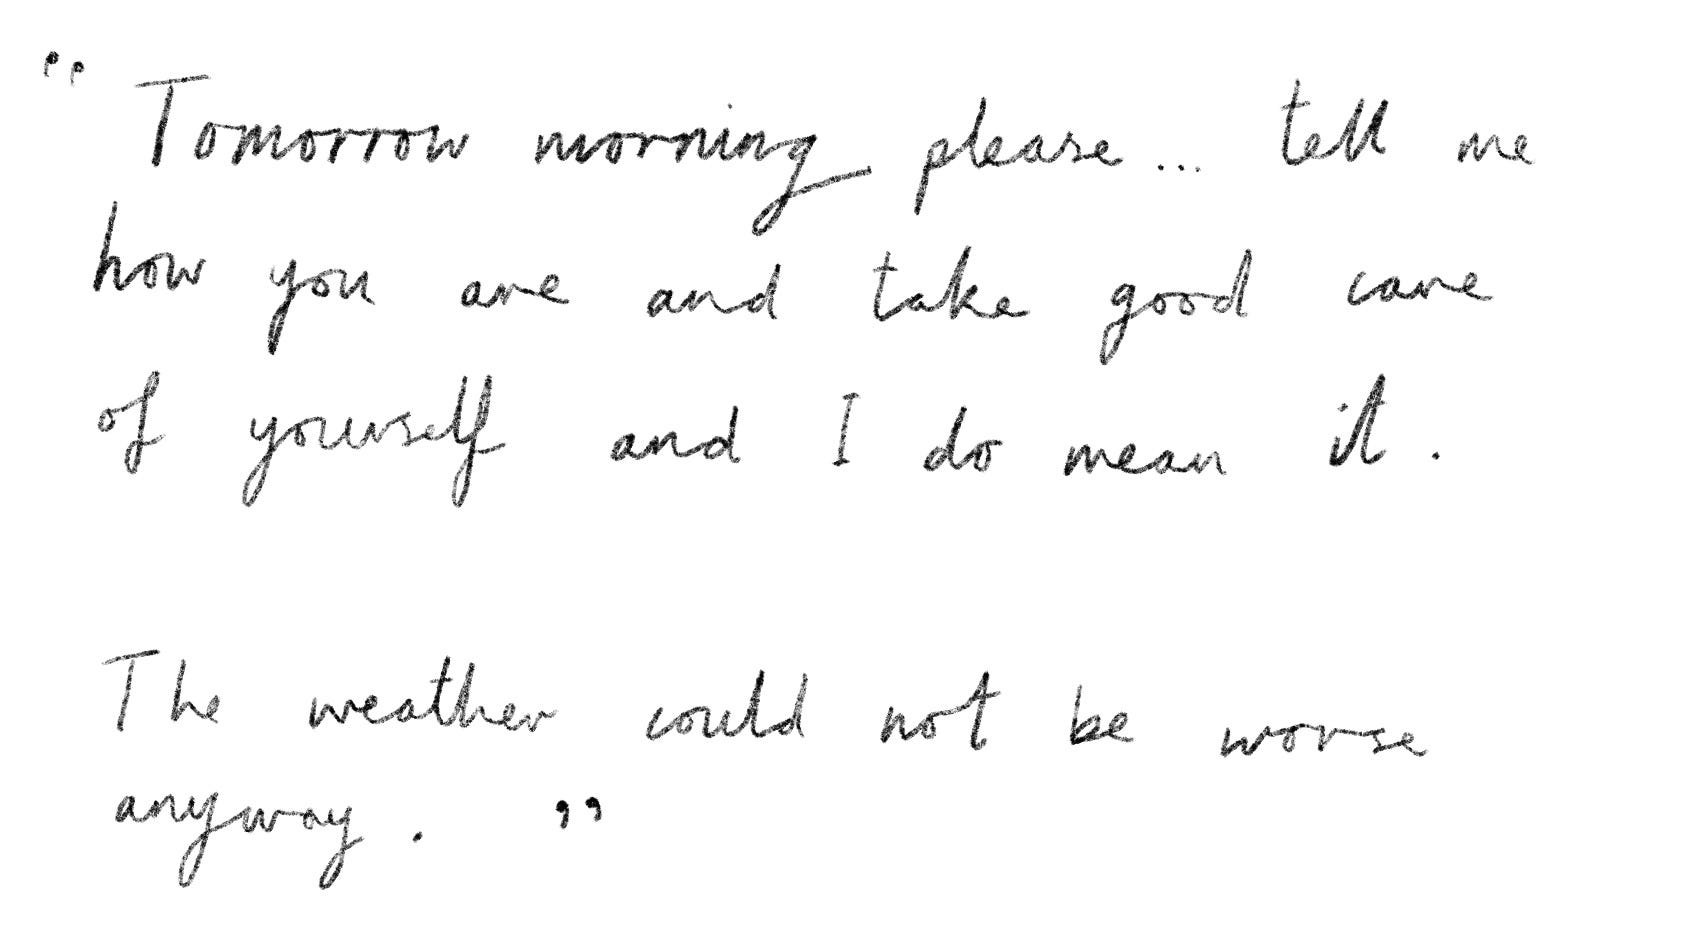 “Tomorrow morning please... tell me
how you are and take good care
of yourself and I do mean it.
The weather could not be worse
anyway.”